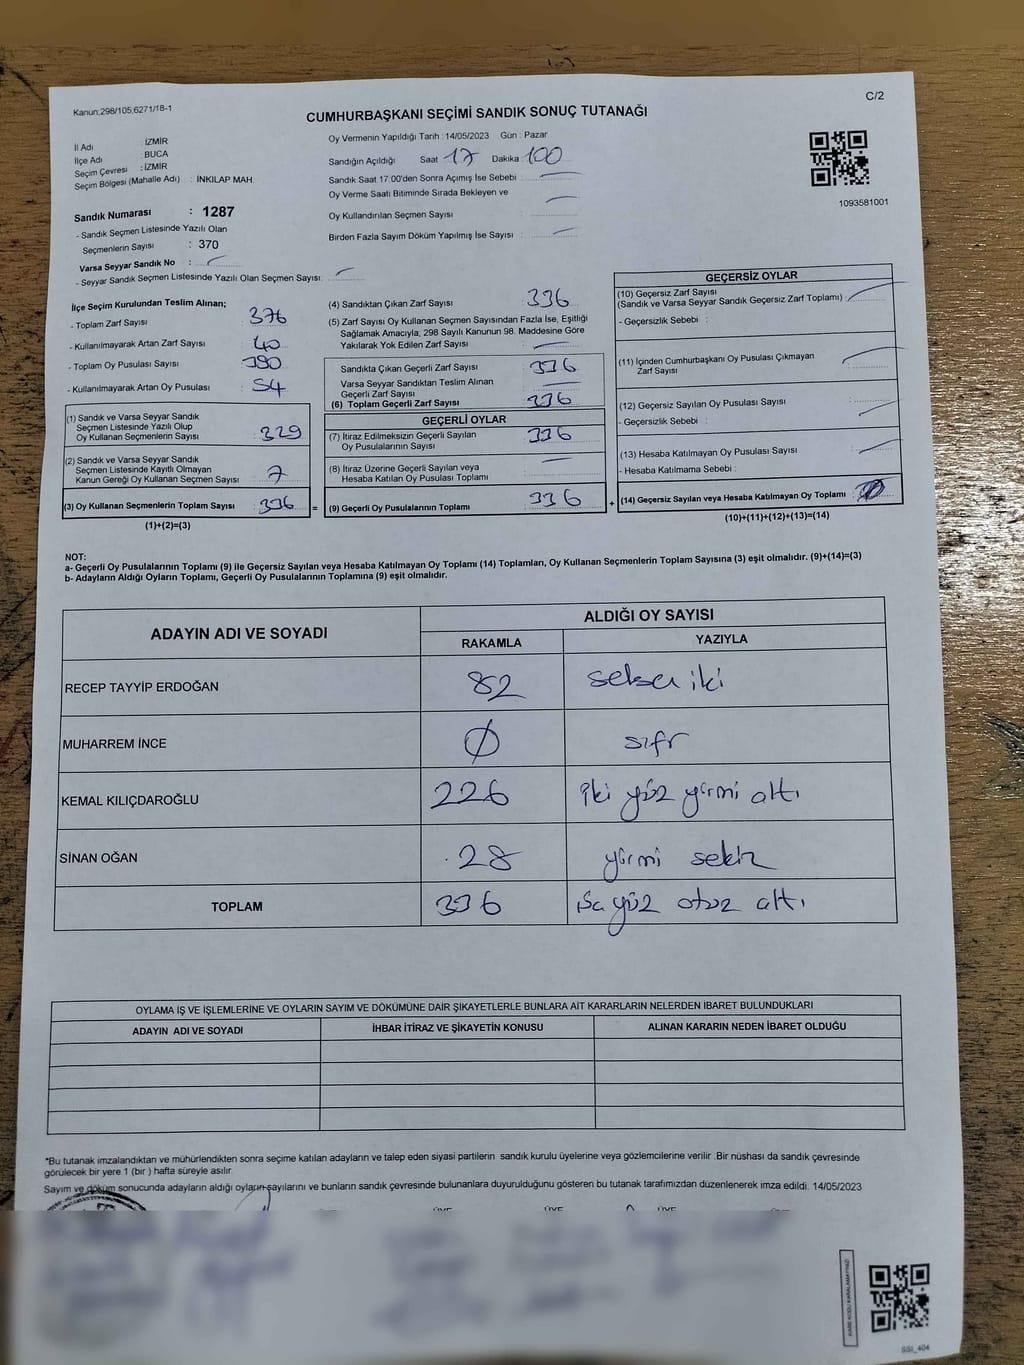 Kanun;298/105;6271/18-1
C/2
CUMHURBAŞKANI SEÇİMİ SANDIK SONUÇ TUTANAĞI
İl Adı : İZMİR
İlçe Adı BUCA
Seçim Çevresi : İZMİR
Seçim Bölgesi (Mahalle Adı) : İNKILAP MAH.
Sandık Numarası : 1287
- Sandık Seçmen Listesinde Yazılı Olan
Seçmenlerin Sayısı : 370
Varsa Seyyar Sandık No :
- Seyyar Sandık Seçmen Listesinde Yazılı Olan Seçmen Sayısı:
Oy Vermenin Yapıldığı Tarih : 14/05/2023 Gün : Pazar
Sandığın Açıldığı Saat 17 Dakika 100
Sandık Saat 17:00'den Sonra Açımış İse Sebebi :
Oy Verme Saati Bitiminde Sırada Bekleyen ve
Oy Kullandırılan Seçmen Sayısı
Birden Fazla Sayım Döküm Yapılmış İse Sayısı :
1093581001
İlçe Seçim Kurulundan Teslim Alınan;
- Toplam Zarf Sayısı : 376
- Kullanılmayarak Artan Zarf Sayısı : 40
- Toplam Oy Pusulası Sayısı : 390
- Kullanılmayarak Artan Oy Pusulası : 54
(1) Sandık ve Varsa Seyyar Sandık
Seçmen Listesinde Yazılı Olup
Oy Kullanan Seçmenlerin Sayısı : 329
(2) Sandık ve Varsa Seyyar Sandık
Seçmen Listesinde Kayıtlı Olmayan
Kanun Gereği Oy Kullanan Seçmen Sayısı : 7
(3) Oy Kullanan Seçmenlerin Toplam Sayısı : 336
(1)+(2)=(3)
(4) Sandıktan Çıkan Zarf Sayısı : 336
(5) Zarf Sayısı Oy Kullanan Seçmen Sayısından Fazla İse, Eşitliği
Sağlamak Amacıyla, 298 Sayılı Kanunun 98. Maddesine Göre
Yakılarak Yok Edilen Zarf Sayısı :
Sandıkta Çıkan Geçerli Zarf Sayısı : 336
Varsa Seyyar Sandıktan Teslim Alınan
Geçerli Zarf Sayısı :
(6) Toplam Geçerli Zarf Sayısı : 336
GEÇERLİ OYLAR
(7) İtiraz Edilmeksizin Geçerli Sayılan
Oy Pusulalarının Sayısı : 336
(8) İtiraz Üzerine Geçerli Sayılan veya
Hesaba Katılan Oy Pusulası Toplamı :
= (9) Geçerli Oy Pusulalarının Toplamı : 336 +
GEÇERSİZ OYLAR
(10) Geçersiz Zarf Sayısı
(Sandık ve Varsa Seyyar Sandık Geçersiz Zarf Toplamı)
- Geçersizlik Sebebi :
(11) İçinden Cumhurbaşkanı Oy Pusulası Çıkmayan
Zarf Sayısı
(12) Geçersiz Sayılan Oy Pusulası Sayısı
- Geçersizlik Sebebi :
(13) Hesaba Katılmayan Oy Pusulası Sayısı
- Hesaba Katılmama Sebebi :
(14) Geçersiz Sayılan veya Hesaba Katılmayan Oy Toplamı :
(10)+(11)+(12)+(13)=(14)
NOT:
a- Geçerli Oy Pusulalarının Toplamı (9) ile Geçersiz Sayılan veya Hesaba Katılmayan Oy Toplamı (14) Toplamları, Oy Kullanan Seçmenlerin Toplam Sayısına (3) eşit olmalıdır. (9)+(14)=(3)
b- Adayların Aldığı Oyların Toplamı, Geçerli Oy Pusulalarının Toplamına (9) eşit olmalıdır.
ADAYIN ADI VE SOYADI
ALDIĞI OY SAYISI
RAKAMLA YAZIYLA
RECEP TAYYİP ERDOĞAN 82 seksen iki
MUHARREM İNCE 0 sıfır
KEMAL KILIÇDAROĞLU 226 iki yüz yirmi altı
SİNAN OĞAN 28 yirmi sekiz
TOPLAM 336 yüz otuz altı
OYLAMA İŞ VE İŞLEMLERİNE VE OYLARIN SAYIM VE DÖKÜMÜNE DAİR ŞİKAYETLERLE BUNLARA AİT KARARLARIN NELERDEN İBARET BULUNDUKLARI
ADAYIN ADI VE SOYADI İHBAR İTİRAZ VE ŞİKAYETİN KONUSU ALINAN KARARIN NEDEN İBARET OLDUĞU
*Bu tutanak imzalandıktan ve mühürlendikten sonra seçime katılan adayların ve talep eden siyasi partilerin sandık kurulu üyelerine veya gözlemcilerine verilir .Bir nüshası da sandık çevresinde
görülecek bir yere 1 (bir ) hafta süreyle asılır.
Sayım ve döküm sonucunda adayların aldığı oyların sayılarını ve bunların sandık çevresinde bulunanlara duyurulduğunu gösteren bu tutanak tarafımızdan düzenlenerek imza edildi. 14/05/2023
KARE KODU KARALAMAYINIZ!
SSI_404